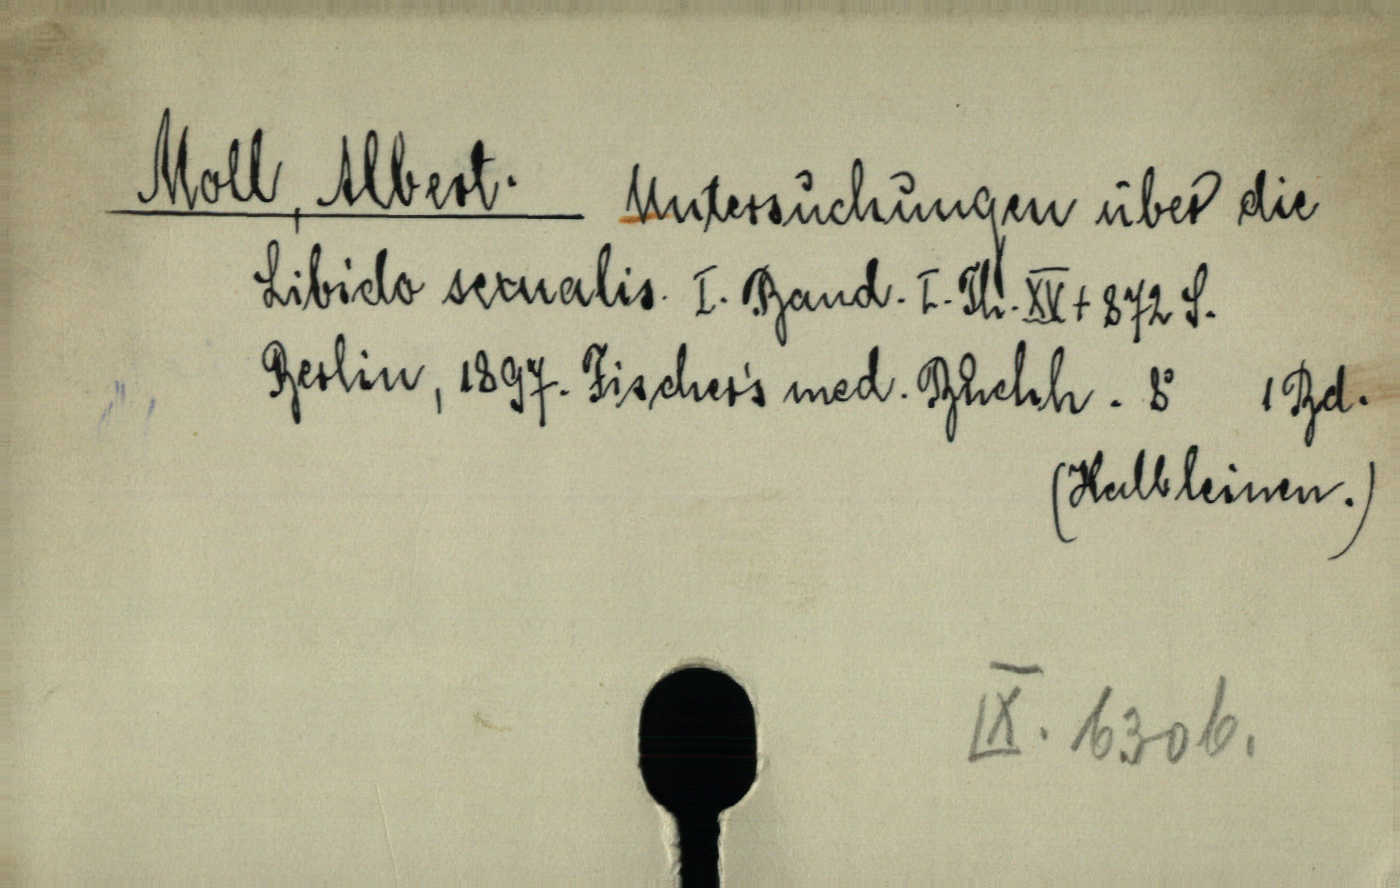 Moll, Albert. Untersuchungen über die
Libido sexualis. I. Band. I. Th. XV + 872 S.
Berlin, 1897. Fischer's med. Buchh. 8° 1 Bd.
(Halbleinen.)
IX. 6306.